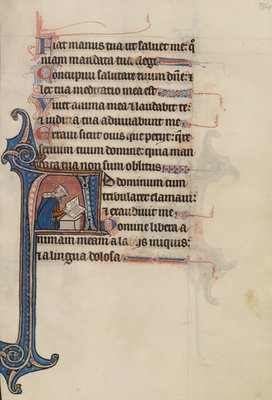 Fiat manus tua ut saluet me: q̄
niam mandata tua elegi
Concupiui salutare tuum dn̄e: ⁊
lex tua meditatio mea est
Uiuet anima mea ⁊ laudabit te:
⁊ iudicia tua adiuuabunt me
Erraui sicut ouis que periit: q̄re
seruum tuum domine: quia man
data tua non sum oblitus
Ad dominum cum
tribularer clamaui:
⁊ exaudiuit me
Domine libera a
nimam meam a labiis iniquis:
⁊ a lingua dolosa